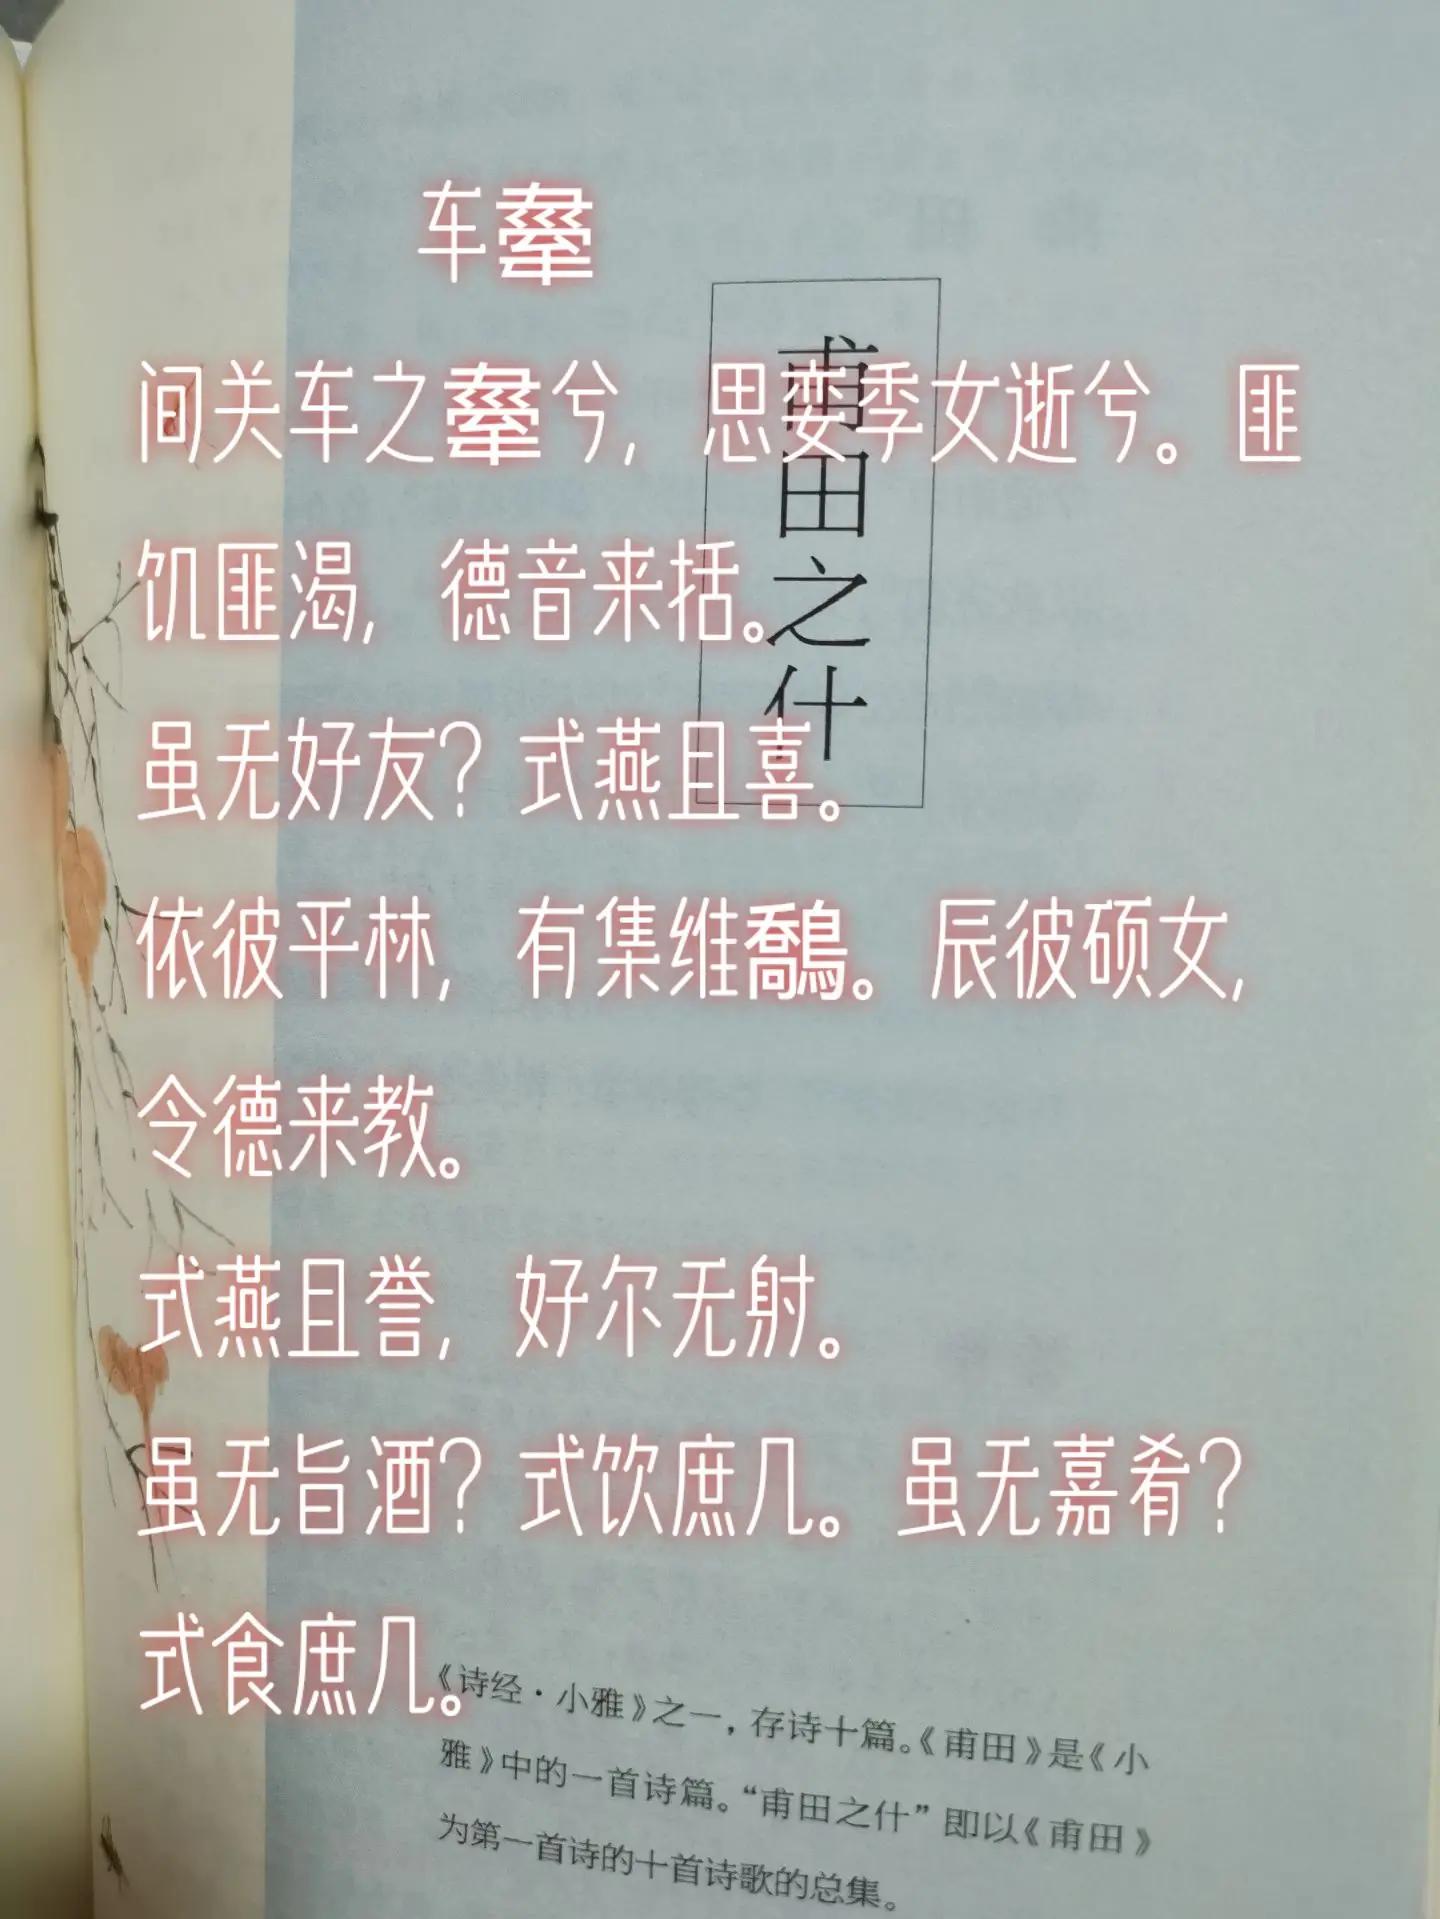 车舝
间关车之舝兮，思娈季女逝兮。匪
饥匪渴，德音来括。
虽无好友？式燕且喜。
依彼平林，有集维鷮。辰彼硕女，
令德来教。
式燕且誉，好尔无射。
虽无旨酒？式饮庶几。虽无嘉肴？
式食庶几。
甫田之什
《诗经·小雅》之一，存诗十篇。《甫田》是《小
雅》中的一首诗篇。“甫田之什”即以《甫田》
为第一首诗的十首诗歌的总集。